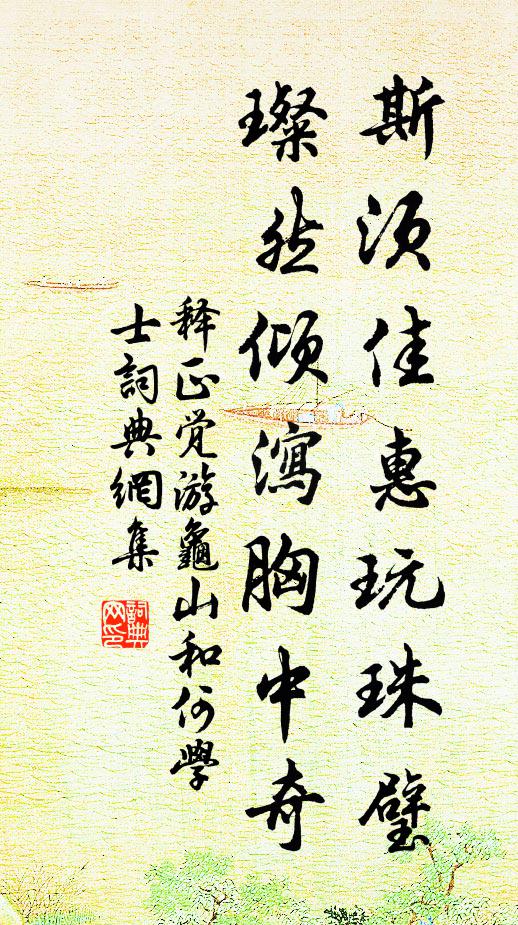 斯須佳惠玩珠璧
璨然傾瀉胸中奇
释正觉游龜山和何學
士詞典網集
詞典网印